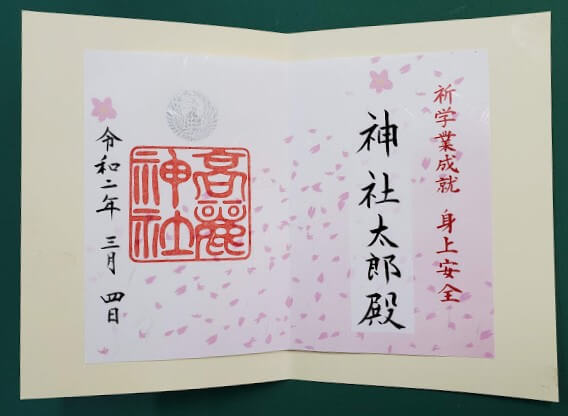 祈学業成就 身上安全
神社太郎殿
高麗
神社
令和二年 三月 四日